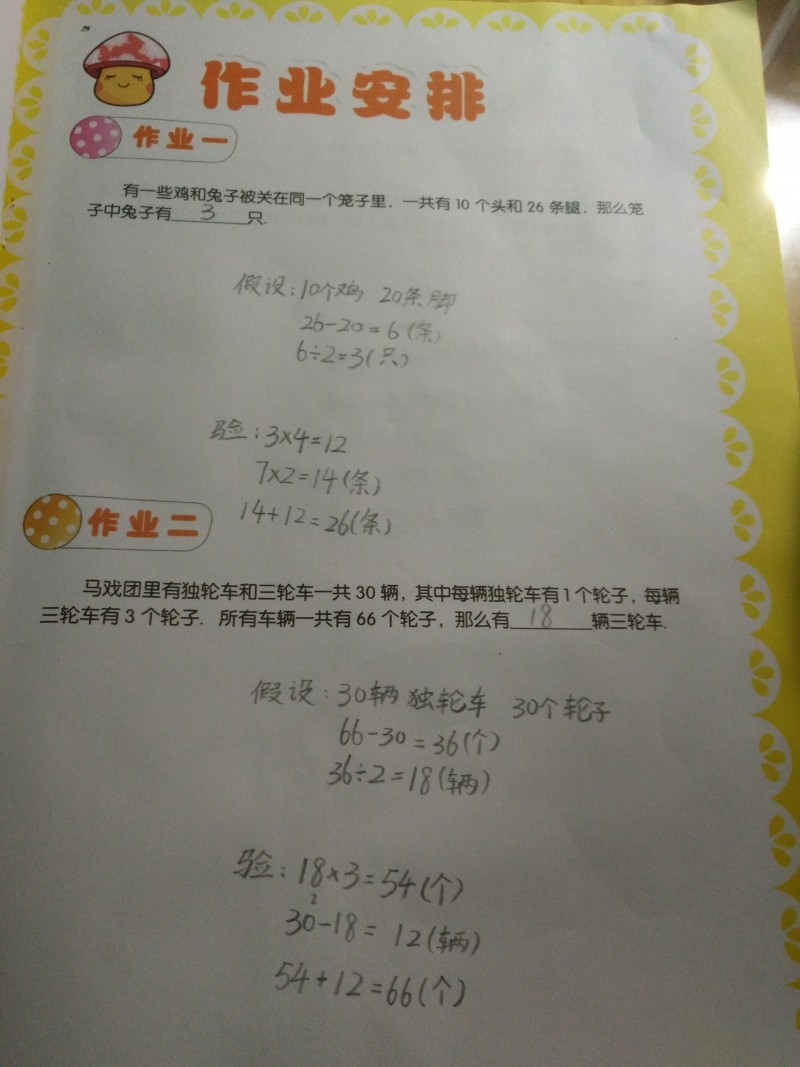 作业安排
作业一
有一些鸡和兔子被关在同一个笼子里，一共有 10 个头和 26 条腿，那么笼
子中兔子有 3 只.
假设：10个鸡 20条脚
26-20=6(条)
6÷2=3(只)
验：3×4=12
7×2=14(条)
14+12=26(条)
作业二
马戏团里有独轮车和三轮车一共 30 辆，其中每辆独轮车有 1 个轮子，每辆
三轮车有 3 个轮子. 所有车辆一共有 66 个轮子，那么有 18 辆三轮车.
假设：30辆 独轮车 30个轮子
66-30=36(个)
36÷2=18(辆)
验：18×3=54(个)
2
30-18= 12(辆)
54+12=66(个)